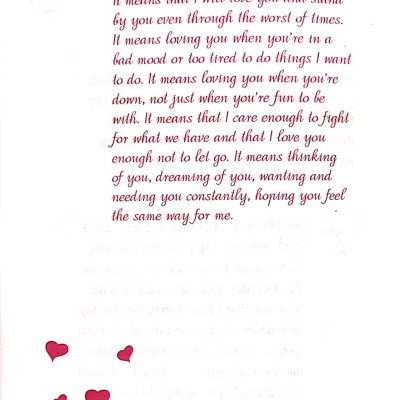 It means that I will love you and stand
by you even through the worst of times.
It means loving you when you're in a
bad mood or too tired to do things I want
to do. It means loving you when you're
down, not just when you're fun to be
with. It means that I care enough to fight
for what we have and that I love you
enough not to let go. It means thinking
of you, dreaming of you, wanting and
needing you constantly, hoping you feel
the same way for me.